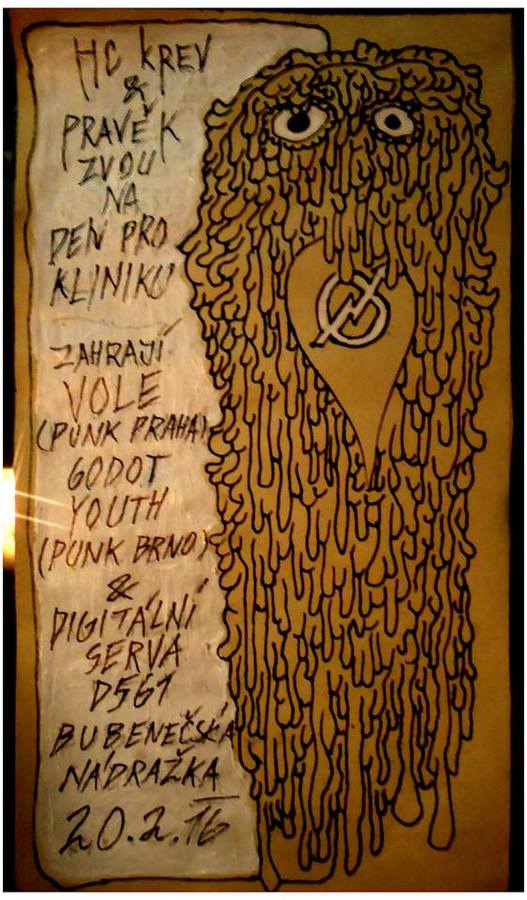 HC KREV
&
PRAVĚK
ZVOU
NA
DEN PRO
KLINIKU
ZAHRAJÍ
VOLE
(PUNK PRAHA)
GODOT
YOUTH
(PUNK BRNO)
&
DIGITÁLNÍ
SERVA
D561
BUBENEČSKÁ
NÁDRAŽKA
20.2.16